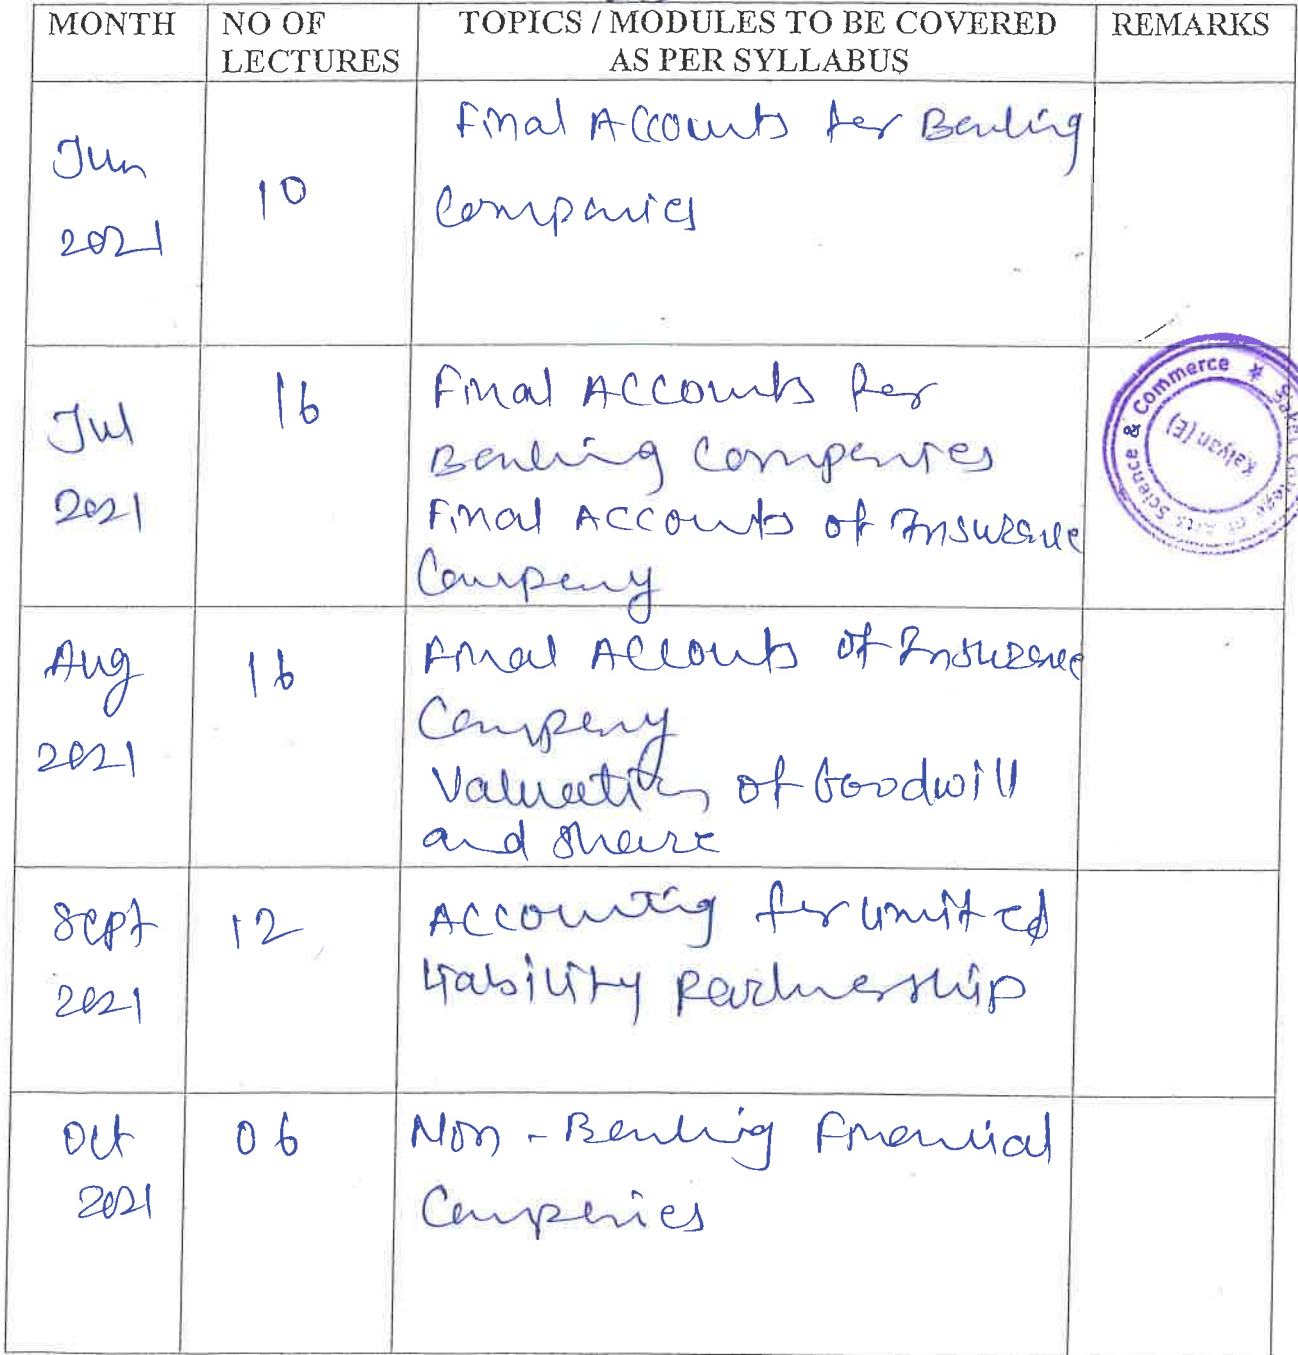 MONTH
NO OF
LECTURES
TOPICS / MODULES TO BE COVERED
AS PER SYLLABUS
REMARKS
Jun
2021
10
Final Accounts for Banking
Companies
Jul
2021
16
Final Accounts for
Banking Companies
Final Accounts of Insurance
Company
Saket College of Arts Science & Commerce *
Kalyan (E)
Aug
2021
16
Final Accounts of Insurance
Company
Valuation of Goodwill
and Share
Sept
2021
12
Accounting for Limited
Liability Partnership
Oct
2021
06
Non-Banking Financial
Companies